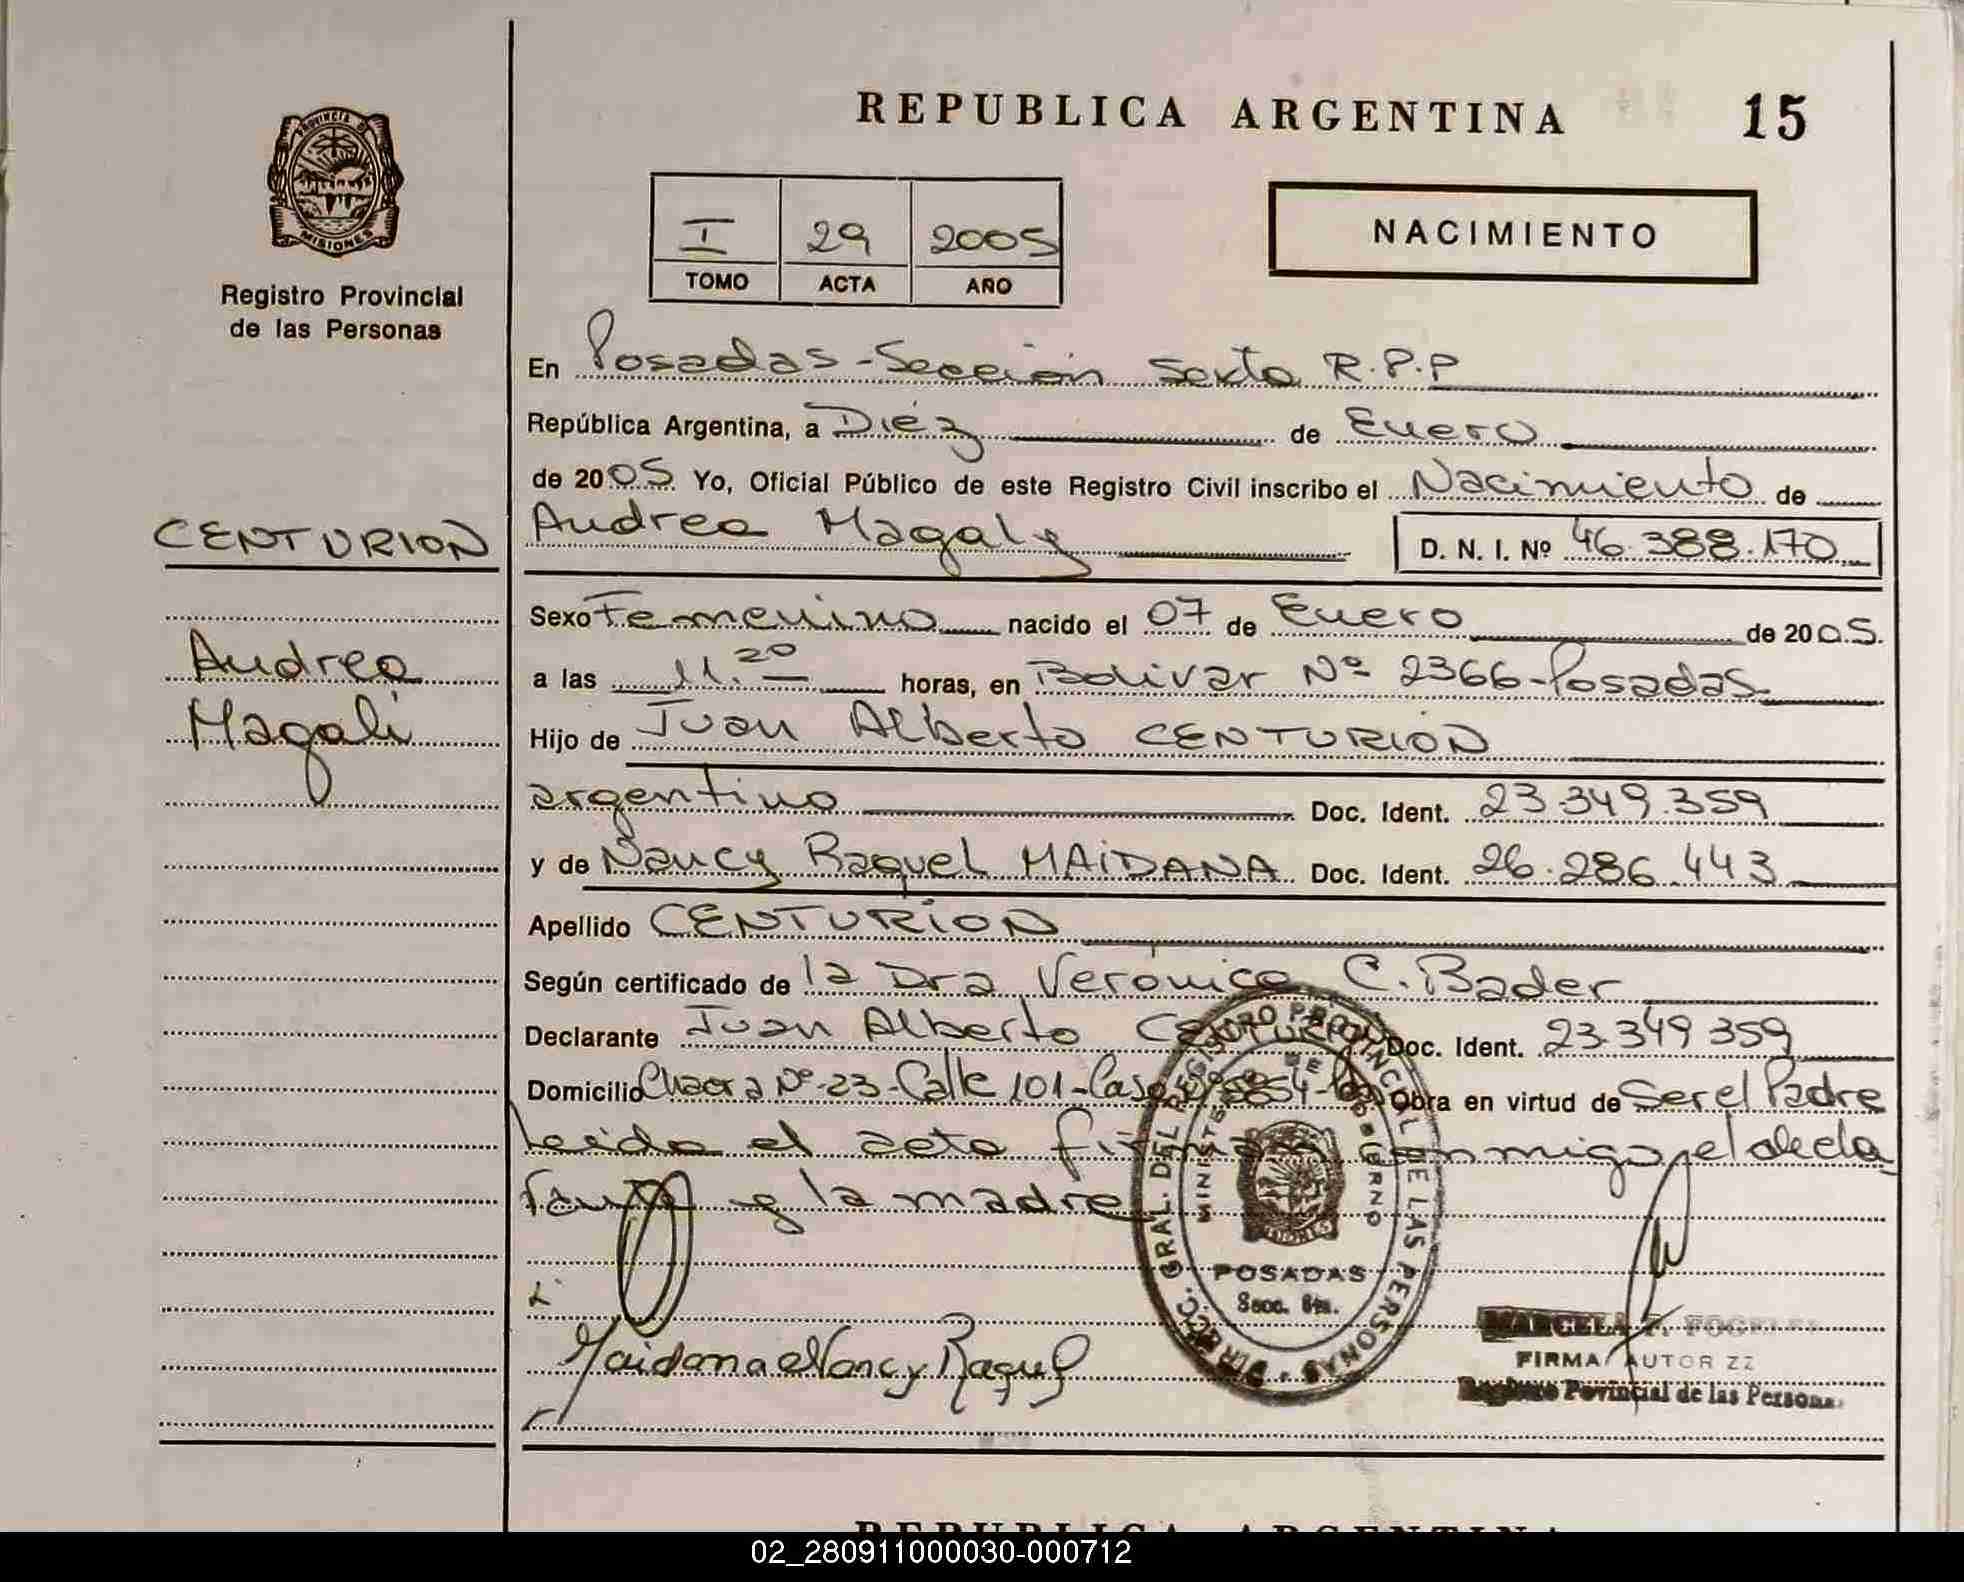 REPUBLICA ARGENTINA 15
PROVINCIA D
MISIONES
Registro Provincial
de las Personas
I 29 2005
TOMO ACTA AÑO
NACIMIENTO
En Posadas-Sección Sexta R.P.P
República Argentina, a Diéz de Enero
de 2005 Yo, Oficial Público de este Registro Civil inscribo el Nacimiento de
CENTURION
Andrea Magaly D. N. I. Nº 46.388.170
Sexo Femenino nacido el 07 de Enero de 2005.
Andrea
Magali
a las 11.20 horas, en Bolivar Nº 2366-Posadas
Hijo de Juan Alberto CENTURION
argentino Doc. Ident. 23.349.359
y de Nancy Raquel MAIDANA Doc. Ident. 26.286.443
Apellido CENTURION
Según certificado de la Dra Verónica C. Bader
Declarante Juan Alberto CENTURION Doc. Ident. 23.349 359
Domicilio Chacra Nº-23-Calle 101-Casa Obra en virtud de Ser el Padre
Leido el acta firman conmigo el decla
rante y la madre
DIRECC. GRAL. DEL REGISTRO PROVINCIAL DE LAS PERSONAS
MINISTERIO DE GOBIERNO
POSADAS
Secc. 6ta.
Maidana Nancy Raquel
MARCELA F.
FIRMA AUTORIZZ
Registro Povincial de las Persona
REPUBLICA ARGENTINA
02_280911000030-000712